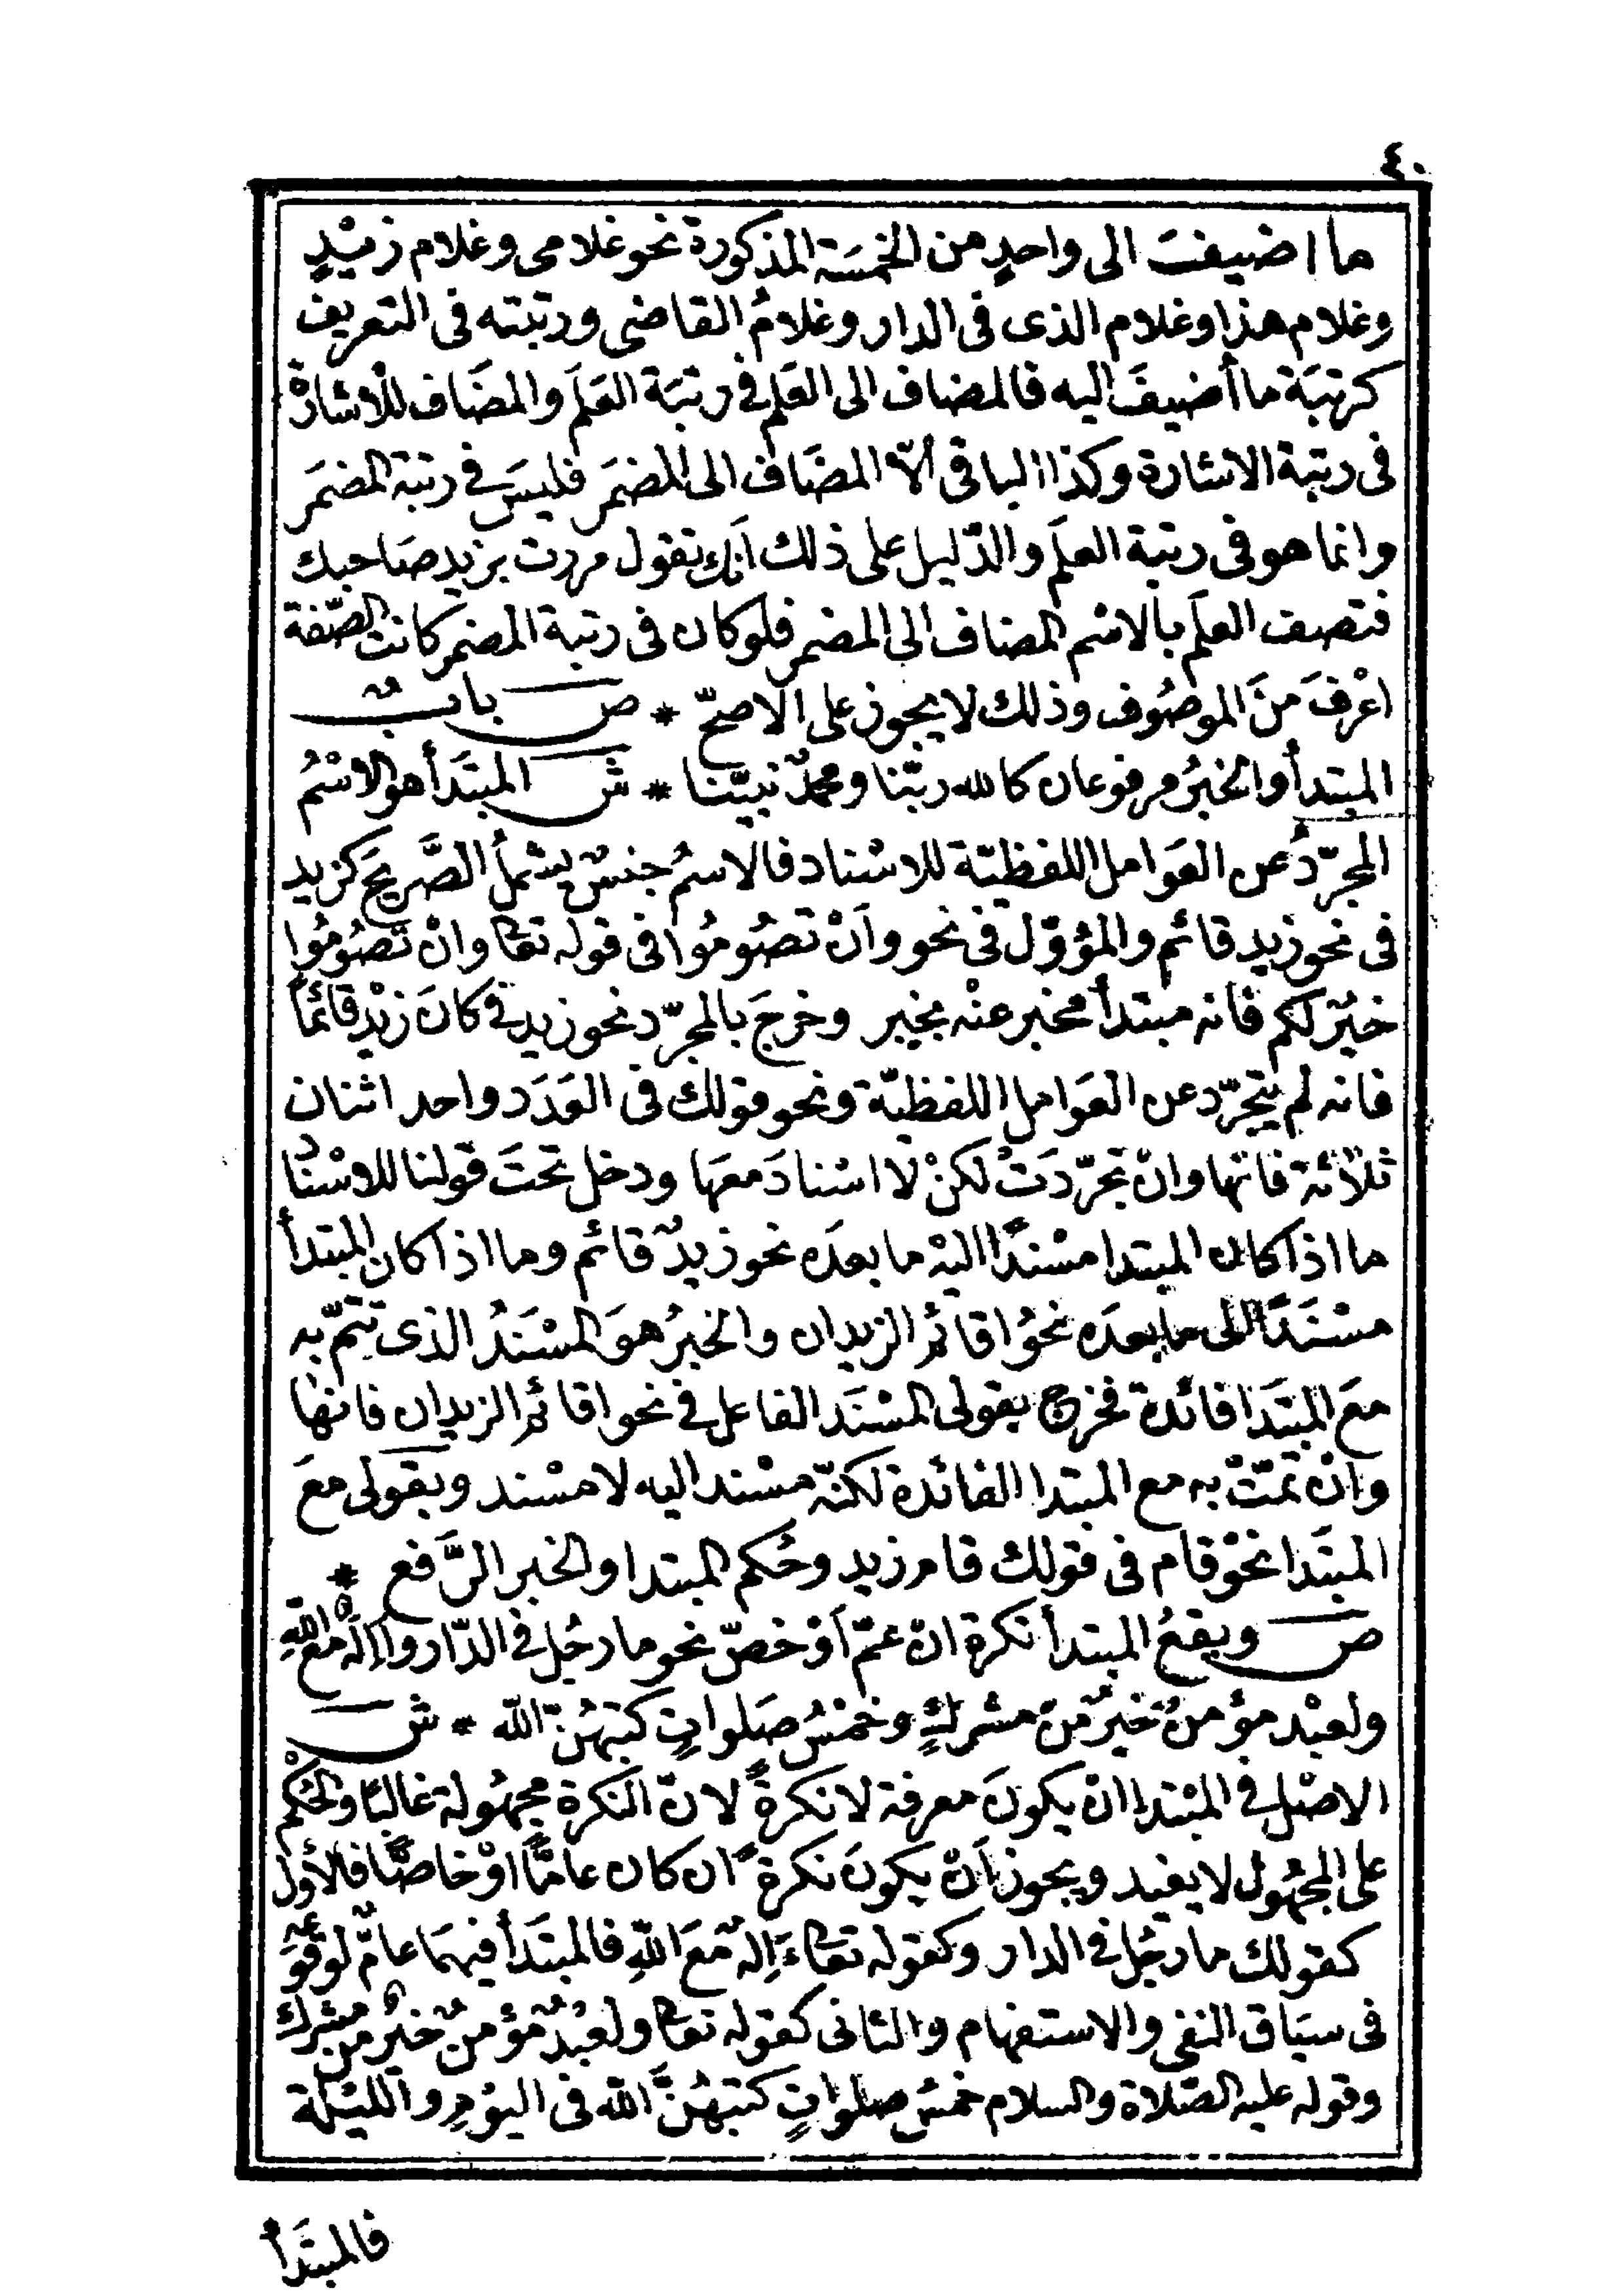 ٤٠
ما اضيفت الى واحدٍ من الخمسَة المذكورة نحو غلامى وغلام زيْدٍ
وغلام هذا وغلام الذى فى الدار وغلامُ القاضى ورتبته فى التعريف
كرتبَة ما أضيفَ اليه فالمضاف الى العَلَم فى رتبَة العَلَم والمضَاف للاشارة
فى رتبة الاشارة وكذا الباقى الّا المضَاف الى المضمَر فليسَ فى رتبة المضمَر
وانما هو فى رتبة العلَم والدّليل على ذلك انّك تقول مررت بزيد صَاحبك
فتصف العلَم بالاسْم المضاف الى المضمر فلو كان فى رتبة المضمر كانت الصّفة
اعْرفَ منَ الموصُوف وذلك لا يجوز على الاصحّ * ص بابٌ
المبتدأ والخبرُ مرفوعان كالله ربّنا ومحمدٌ نبيّنا * ش المبتَدأ هو الاسْمُ
المجرّدُ عن العَوامل اللفظيّة للاسْناد فالاسمُ جنسٌ يشملُ الصَّريحَ كزيد
فى نحو زيد قائم والمؤوّل فى نحو وأنْ تصُومُوا فى قوله تعا وانْ تَصُومُوا
خيْرٌ لكم فانه مبتدأ مخبر عنْه بخير وخرجَ بالمجرّد نحو زيد فى كانَ زيْد قائمًا
فانه لم يتجرّد عن العَوامل اللفظيّة ونحو قولك فى العَدَد واحد اثنان
ثلاثة فانها وانْ تجرّدَتْ لكنْ لا اسْنادَ معَها ودخل تحتَ قولنا للاسْناد
ما اذا كان المبتدا مسْندًا اليْه ما بعدَه نحو زيدٌ قائم وما اذا كان المبتدأ
مسْنَدًا الى ما بعدَه نحوُ اقائم الزيدان والخبرُ هوَ المسْنَدُ الذى تتمّ به
معَ المبتَدَا فائدة فخرج بقولى المسْنَد الفاعل فى نحو اقائم الزيدان فانها
وَانْ تمّتْ به مع المبتدا الفائدة لكنّه مسْند اليه لا مسْند وبقولى معَ
المبتَدَا نحوْ قام فى قولك قام زيد وحُكم المبتدا والخبر الرَّفع *
ص ويقعُ المبتدأ نكرة انْ عمّ اوْ خصّ نحو ما رجُل فى الدّار وأإلهٌ معَ اللهِ
ولعبْد مؤمنٌ خيرٌ منْ مشركٍ وخمْسُ صَلواتٍ كتبهُنّ الله * ش
الاصْل فى المبْتدا انْ يكونَ معرفة لا نكرةً لانّ النكرة مجهُولة غالبًا والحُكْم
على المجهُول لا يفيد ويجوز اَنْ يكونَ نكرةً ان كان عامًّا اوْ خاصًّا فالأول
كقولك ما رجُل فى الدار وكقوله تعا ءَإلهٌ معَ اللهِ فالمبتَدأ فيهمَا عامّ لوقوعه
فى سيَاق النفى والاستفهام والثانى كقوله تعا ولعَبْدٌ مؤمنٌ خيرٌ من مشرك
وقوله عليه الصّلاة والسلام خمْسُ صلواتٍ كتبهُنَّ الله فى اليوْمِ والليْلة
فالمبتَدأ